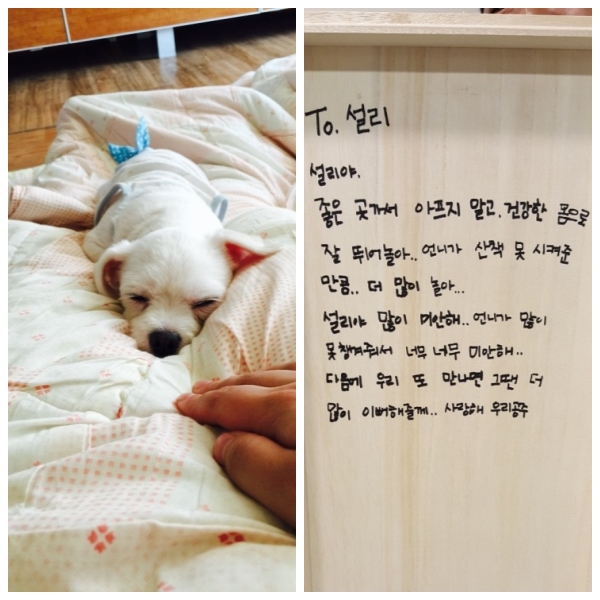 To. 설리
설리야.
좋은 곳가서 아프지 말고. 건강한 몸으로
잘 뛰어놀아.. 언니가 산책 못 시켜준
만큼.. 더 많이 놀아...
설리야 많이 미안해.. 언니가 많이
못챙겨줘서 너무 너무 미안해..
다음에 우리 또 만나면 그땐 더
많이 이뻐해줄께.. 사랑해 우리공주